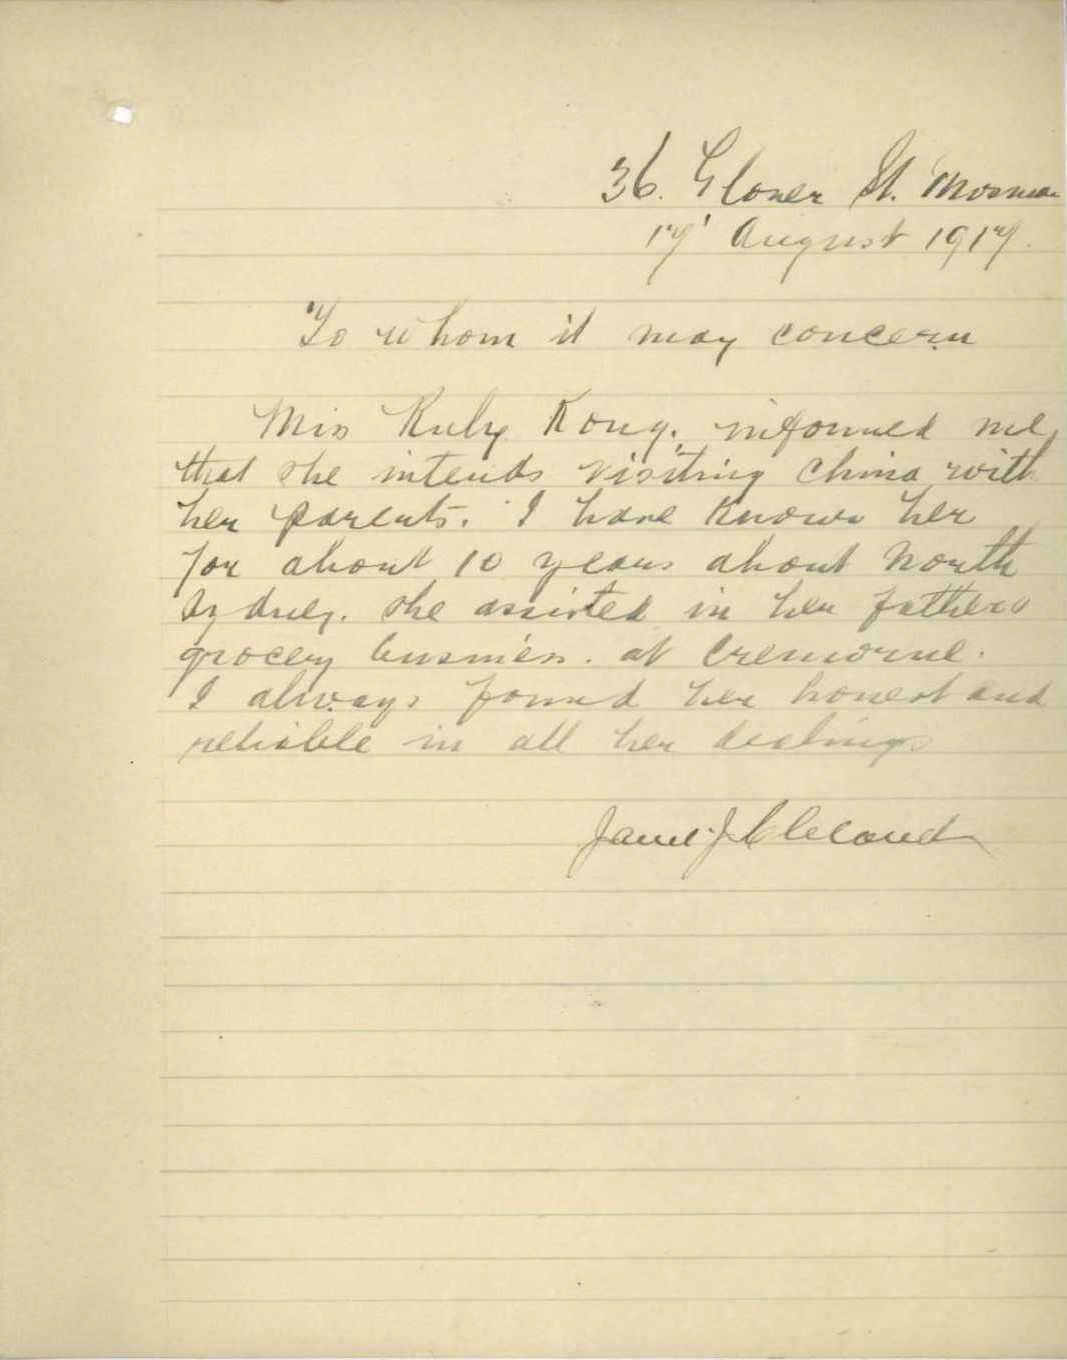 36. Glover St. Mosman
17' August 1917.
To whom it may concern
Miss Ruby Kong. informed me
that she intends visiting China with
her parents. I have known her
for about 10 years about North
Sydney. She assisted in her fathers
grocery business. at Cremorne.
I always found her honest and
reliable in all her dealings
J Cleland